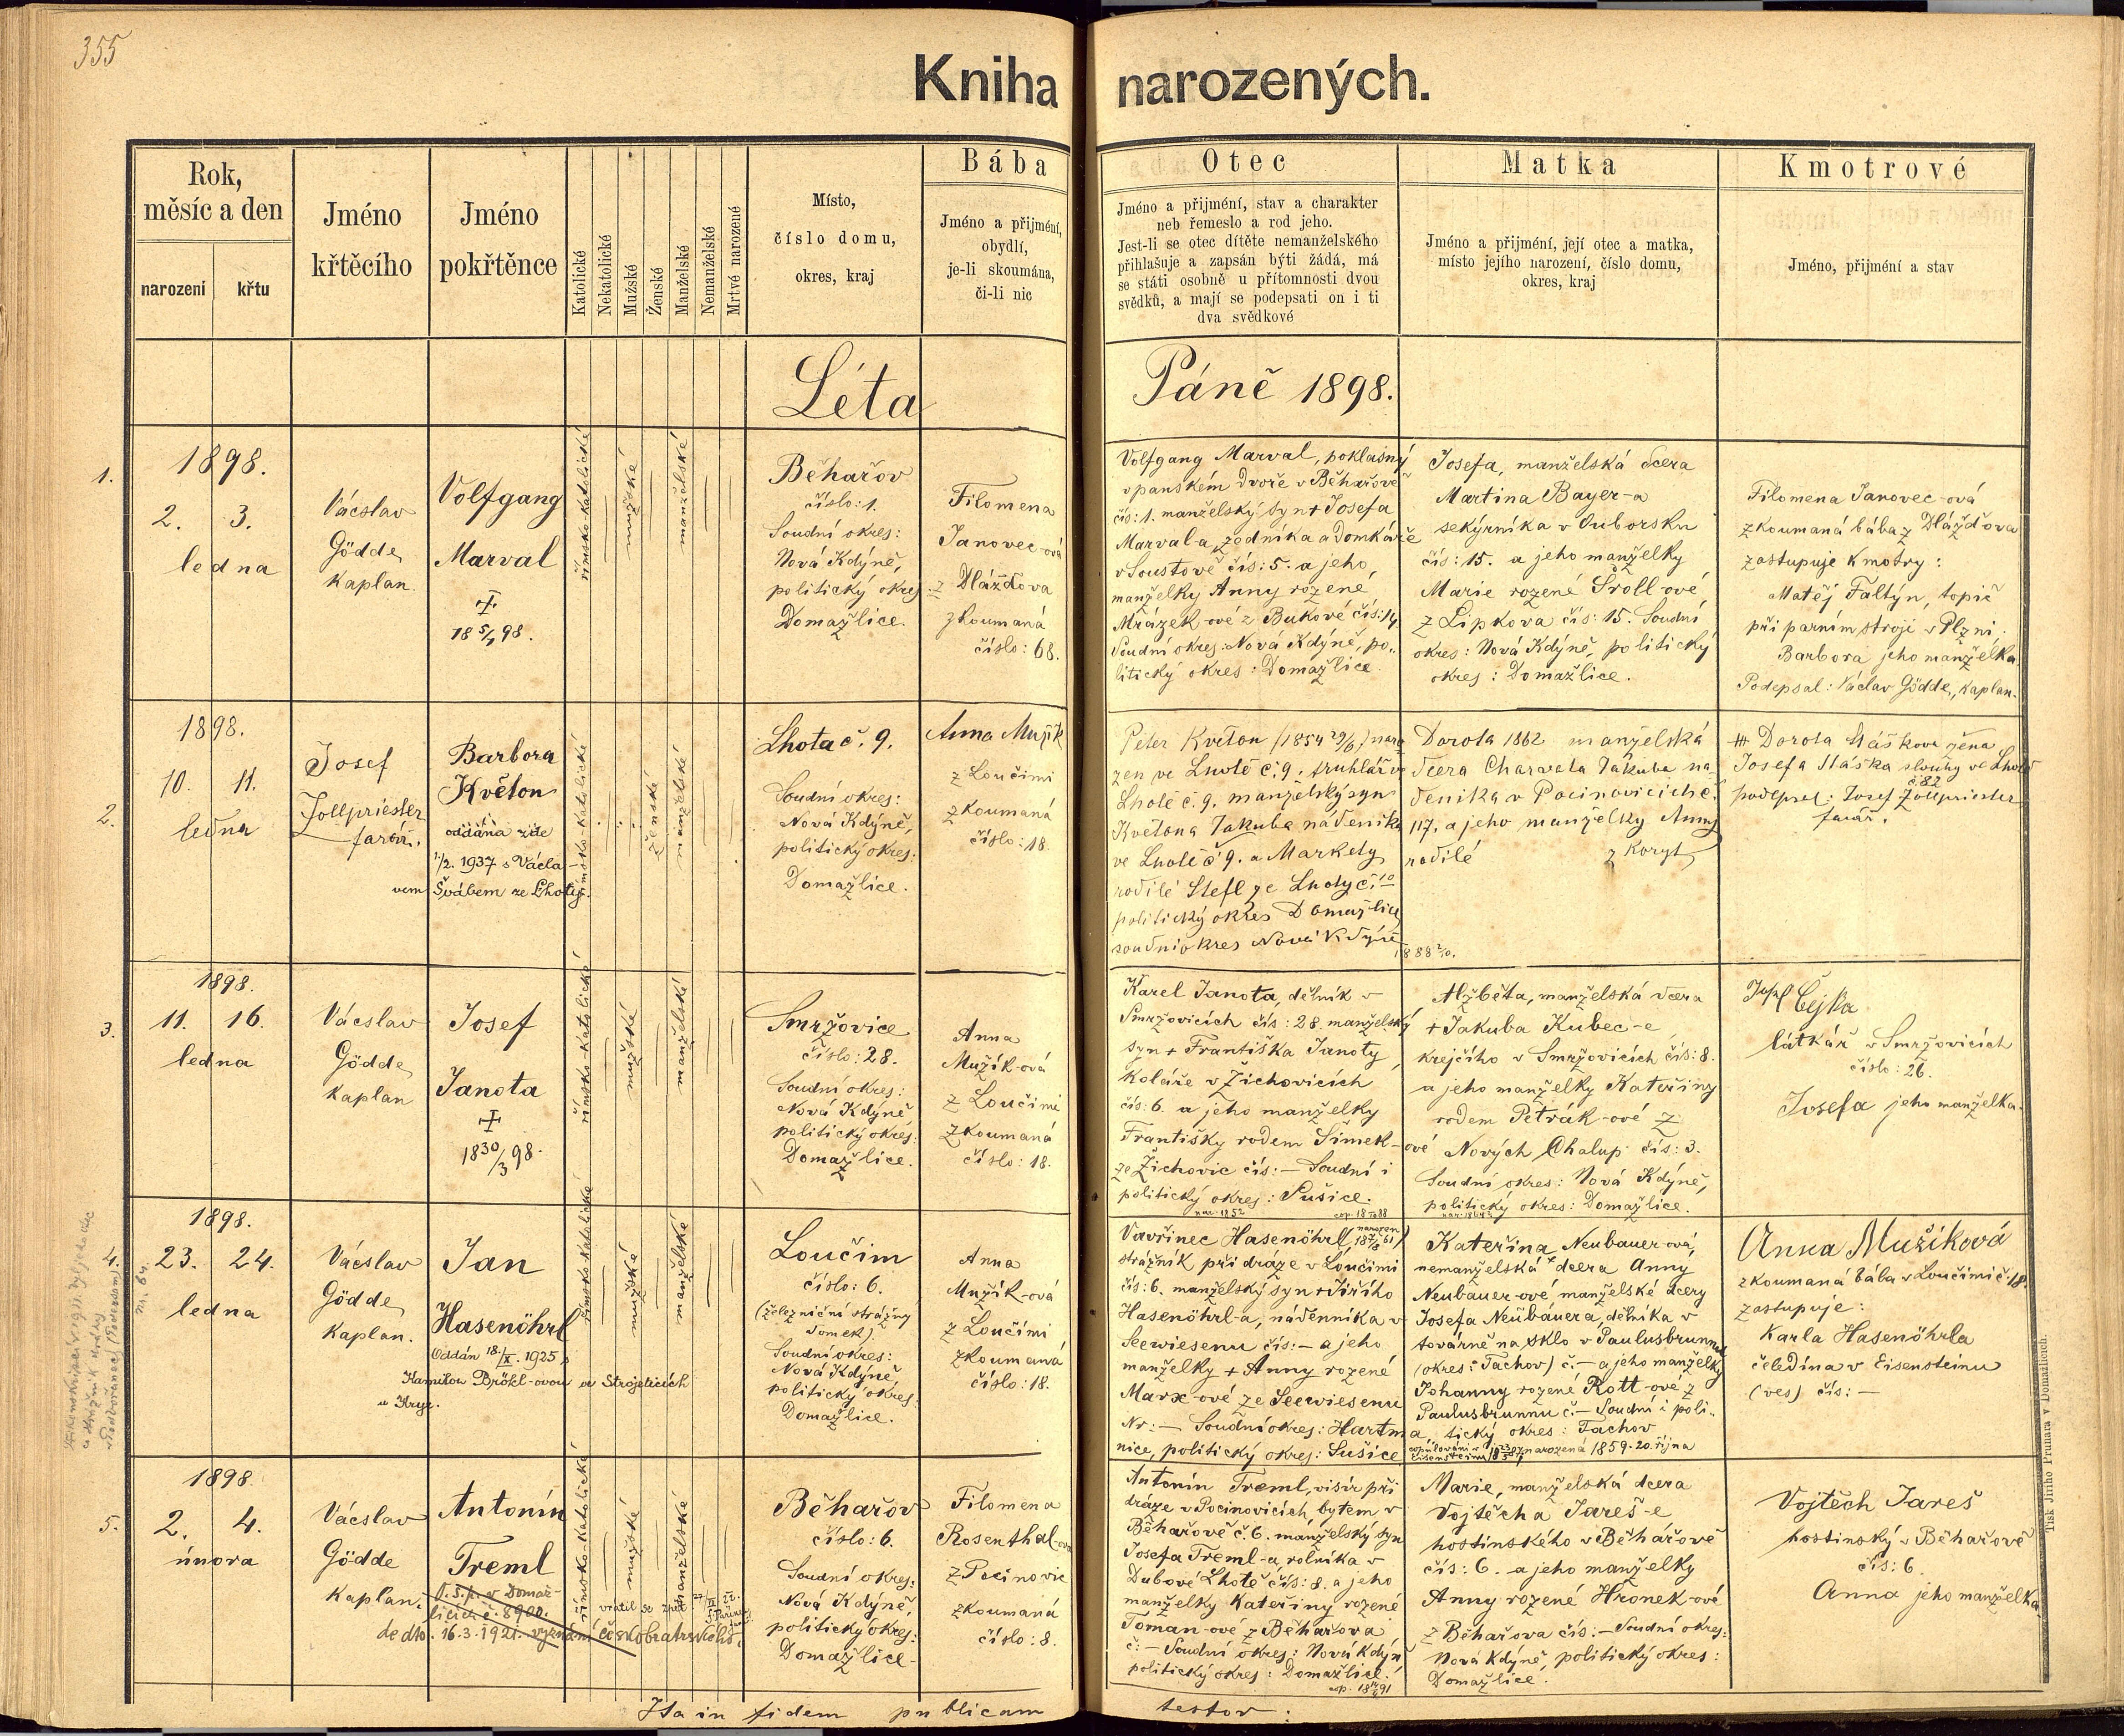 355
Kniha narozených.
Rok,
měsíc a den
narození
křtu
Jméno
křtěcího
Jméno
pokřtěnce
Katolické
Nekatolické
Mužské
Ženské
Manželské
Nemanželské
Mrtvé narozené
Místo,
číslo domu,
okres, kraj
Bába
Jméno a přijmení,
obydlí,
je-li skoumána,
či-li nic
Otec
Jméno a přijmení, stav a charakter
neb řemeslo a rod jeho.
Jest-li se otec dítěte nemanželského
přihlašuje a zapsán býti žádá, má
se státi osobně u přítomnosti dvou
svědků, a mají se podepsati on i ti
dva svědkové
Matka
Jméno a přijmení, její otec a matka,
místo jejího narození, číslo domu,
okres, kraj
Kmotrové
Jméno, přijmení a stav
Léta Páně 1898.
1.
1898.
2. 3.
ledna
Vácslav
Gödde
kaplan.
Volfgang
Marval
18 5/1 98.
římsko-katolické
mužské
manželské
Běhařov
číslo: 1.
Soudní okres:
Nová Kdýně,
politický okres:
Domažlice.
Filomena
Janovec-ová
z Dlážďova
zkoumaná
číslo: 68.
Volfgang Marval, poklasný
v panském dvoře v Běhařově
čís: 1. manželský syn + Josefa
Marval-a, zedníka a domkáře
v Soustově čís: 5. a jeho
manželky Anny rozené
Mrázek-ové z Bukové čís: 14
Soudní okres: Nová Kdýně, po-
litický okres: Domažlice.
Josefa, manželská dcera
Martina Bayer-a
sekýrníka v Úuborsku
čís: 15. a jeho manželky
Marie rozené Šroll-ové
z Lipkova čís: 15. Soudní
okres: Nová Kdýně, politický
okres: Domažlice.
Filomena Janovec-ová
zkoumaná bába z Dlážďova
zastupuje kmotry:
Matěj Faltýn, topič
při parním stroji v Plzni.
Barbora jeho manželka
Podepsal: Václav Gödde, kaplan.
2.
1898.
10. 11.
ledna
Josef
Zollpriester
farář.
Barbora
Květon
oddána zde
1/2. 1937 s Václa-
vem Švábem ze Lhoty
římsko-katolické
ženské
manželské
Lhota č. 9.
Soudní okres:
Nová Kdýně,
politický okres:
Domažlice.
Anna Mužík
z Loučimi
zkoumaná
číslo: 18.
Peter Květon (1854 29/6) naro
zen ve Lhotě č. 9. truhlář v
Lhotě č. 9. manželský syn
Květona Jakuba nádeníka
ve Lhotě č 9. a Markety
rodilé Stefl ze Lhoty č. 10
politický okres Domažlice
soudní okres Nová Kdýně
1888 2/10.
Dorota 1862 manželská
dcera Charvata Jakuba ná-
deníka v Pocinovicích č.
117. a jeho manželky Anny
rodilé z Koryt
+++ Dorota Hášková žena
Josefa Háška slouhy ve Lhotě
č 82
podepsal: Josef Zollpriester
farář.
3.
1898.
11. 16.
ledna
Vácslav
Gödde
kaplan
Josef
Janota
18 30/3 98.
římsko-katolické
mužské
manželské
Smržovice
číslo: 28.
Soudní okres:
Nová Kdýně
politický okres:
Domažlice.
Anna
Mužík-ová
z Loučimi
zkoumaná
číslo: 18.
Karel Janota, dělník v
Smržovicích čís: 28. manželský
syn + Františka Janoty,
koláře v Žichovicích
čís: 6. a jeho manželky
Františky rodem Šimek-ové
ze Žichovic čís: — Soudní i
politický okres: Sušice.
nar. 1852
Alžběta, manželská dcera
+ Jakuba Kubec-e
krejčího v Smržovicích čís: 8.
a jeho manželky Kateřiny
rodem Petrák-ové z
Nových Chalup čís: 3.
Soudní okres: Nová Kdýně,
politický okres: Domažlice.
Josef Cejka
látkář v Smržovicích
číslo: 26.
Josefa jeho manželka.
4.
1898.
23. 24.
ledna
Vácslav
Gödde
kaplan.
Jan
Hasenöhrl
Oddán 18./X. 1925 s
Kamilou Bröhl-ovou ve Strojeticích
u Kryr.
římsko-katolické
mužské
manželské
Loučim
číslo: 6.
(železniční strážný
domek)
Soudní okres:
Nová Kdýně,
politický okres:
Domažlice.
Anna
Mužík-ová
z Loučimi
zkoumaná
číslo: 18.
Vavřinec Hasenöhrl (narozen 18 7/8 61)
strážník při dráze v Loučimi
čís: 6. manželský syn + Jiřího
Hasenöhrl-a, nádenníka v
Seewiesenu čís: — a jeho
manželky + Anny rozené
Marx-ové ze Seewiesenu
Nr: — Soudní okres: Hartma
nice, politický okres: Sušice
Kateřina Neubauer-ová,
nemanželská dcera Anny
Neubauer-ové manželské dcery
Josefa Neubauera, dělníka v
továrně na sklo v Paulusbrunnu
(okres: Tachov) č. — a jeho manželky
Johanny rozené Rott-ové z
Paulusbrunnu č. — Soudní i poli-
tický okres: Tachov
narozená 1859. 20. října
Anna Mužíková
zkoumaná bába v Loučimi č 18.
zastupuje:
Karla Hasenöhrla
čeledína v Eisensteinu
(ves) čís: —
5.
1898
2. 4.
února
Vácslav
Gödde
kaplan.
Antonín
Treml
dedto. 16.3.1921. vyznání českobratrského.
vrátil se zpět
římsko-katolické
mužské
manželské
Běhařov
číslo: 6.
Soudní okres:
Nová Kdýně,
politický okres:
Domažlice.
Filomena
Rosenthal-ová
z Pocinovic
zkoumaná
číslo: 8.
Antonín Treml, visír při
dráze v Pocinovicích, bytem v
Běhařově č. 6. manželský syn
Josefa Treml-a, rolníka v
Dubové Lhotě čís: 8. a jeho
manželky Kateřiny rozené
Toman-ové z Běhařova
č: — Soudní okres: Nová Kdýn
politický okres: Domažlice.
Marie, manželská dcera
Vojtěcha Jareš-e
hostinského v Běhařově
čís: 6. a jeho manželky
Anny rozené Hronek-ové
z Běhařova čís: — Soudní okres:
Nová Kdýně, politický okres:
Domažlice.
Vojtěch Jareš
hostinský v Běhařově
čís: 6.
Anna jeho manželka.
Ita in fidem publicam testor:
Tisk Jiřího Prunara v Domažlicích.